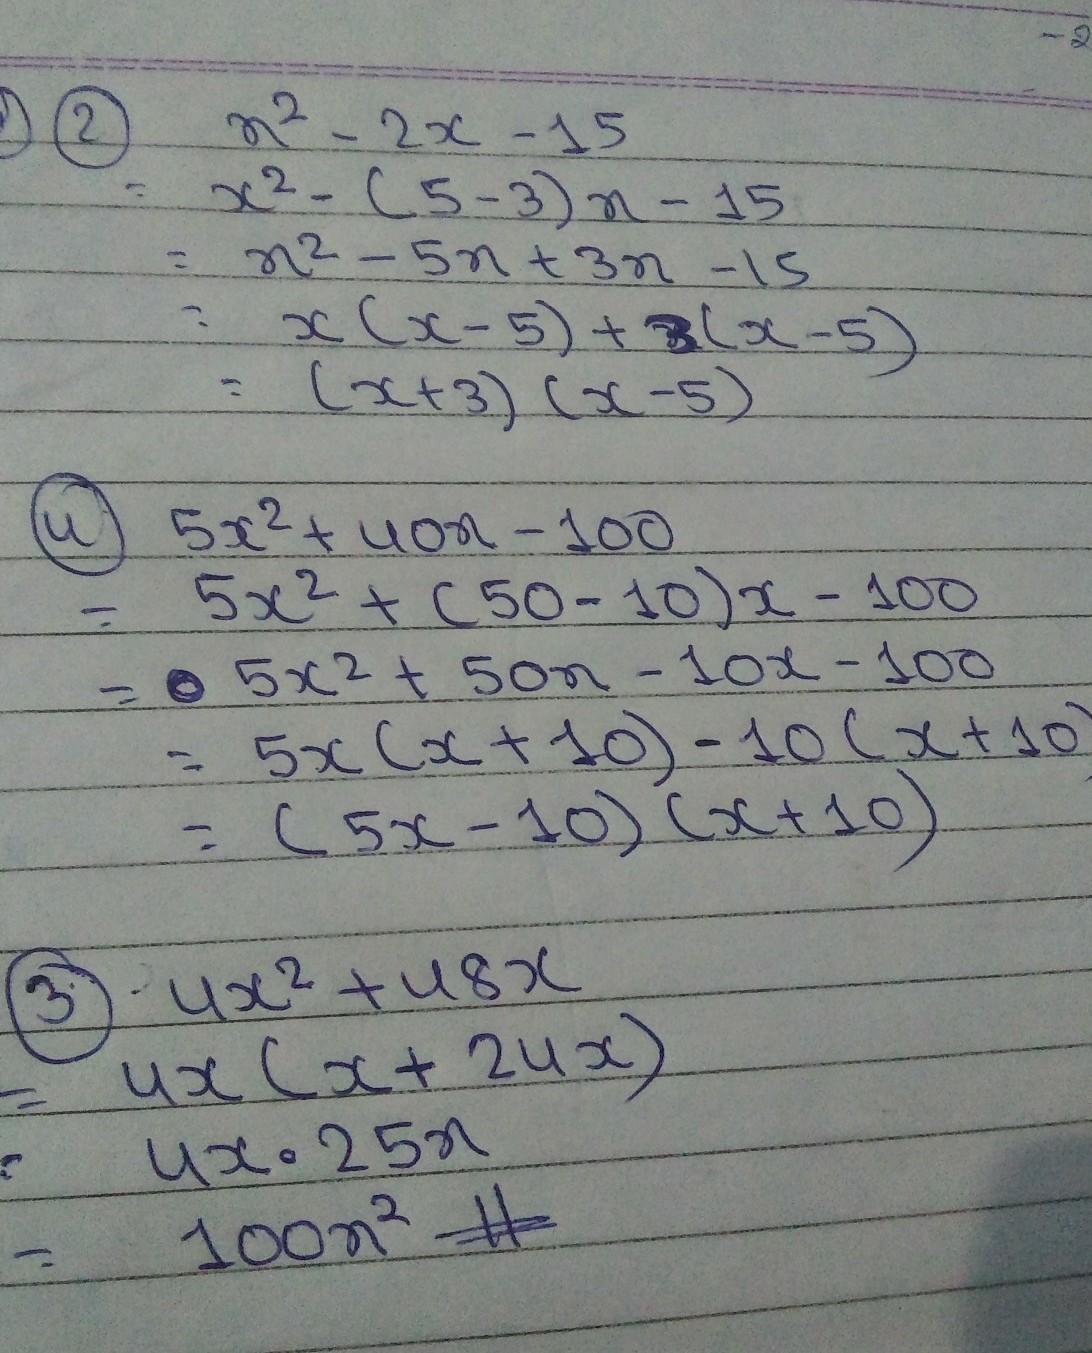 -2
② x² - 2x - 15
= x² - (5-3)x - 15
= x² - 5x + 3x - 15
= x(x-5) + 3(x-5)
= (x+3) (x-5)
④ 5x² + 40x - 100
= 5x² + (50-10)x - 100
= 5x² + 50x - 10x - 100
= 5x(x+10) - 10(x+10)
= (5x-10) (x+10)
③ 4x² + 48x
= 4x(x + 24x)
= 4x · 25x
= 100x²